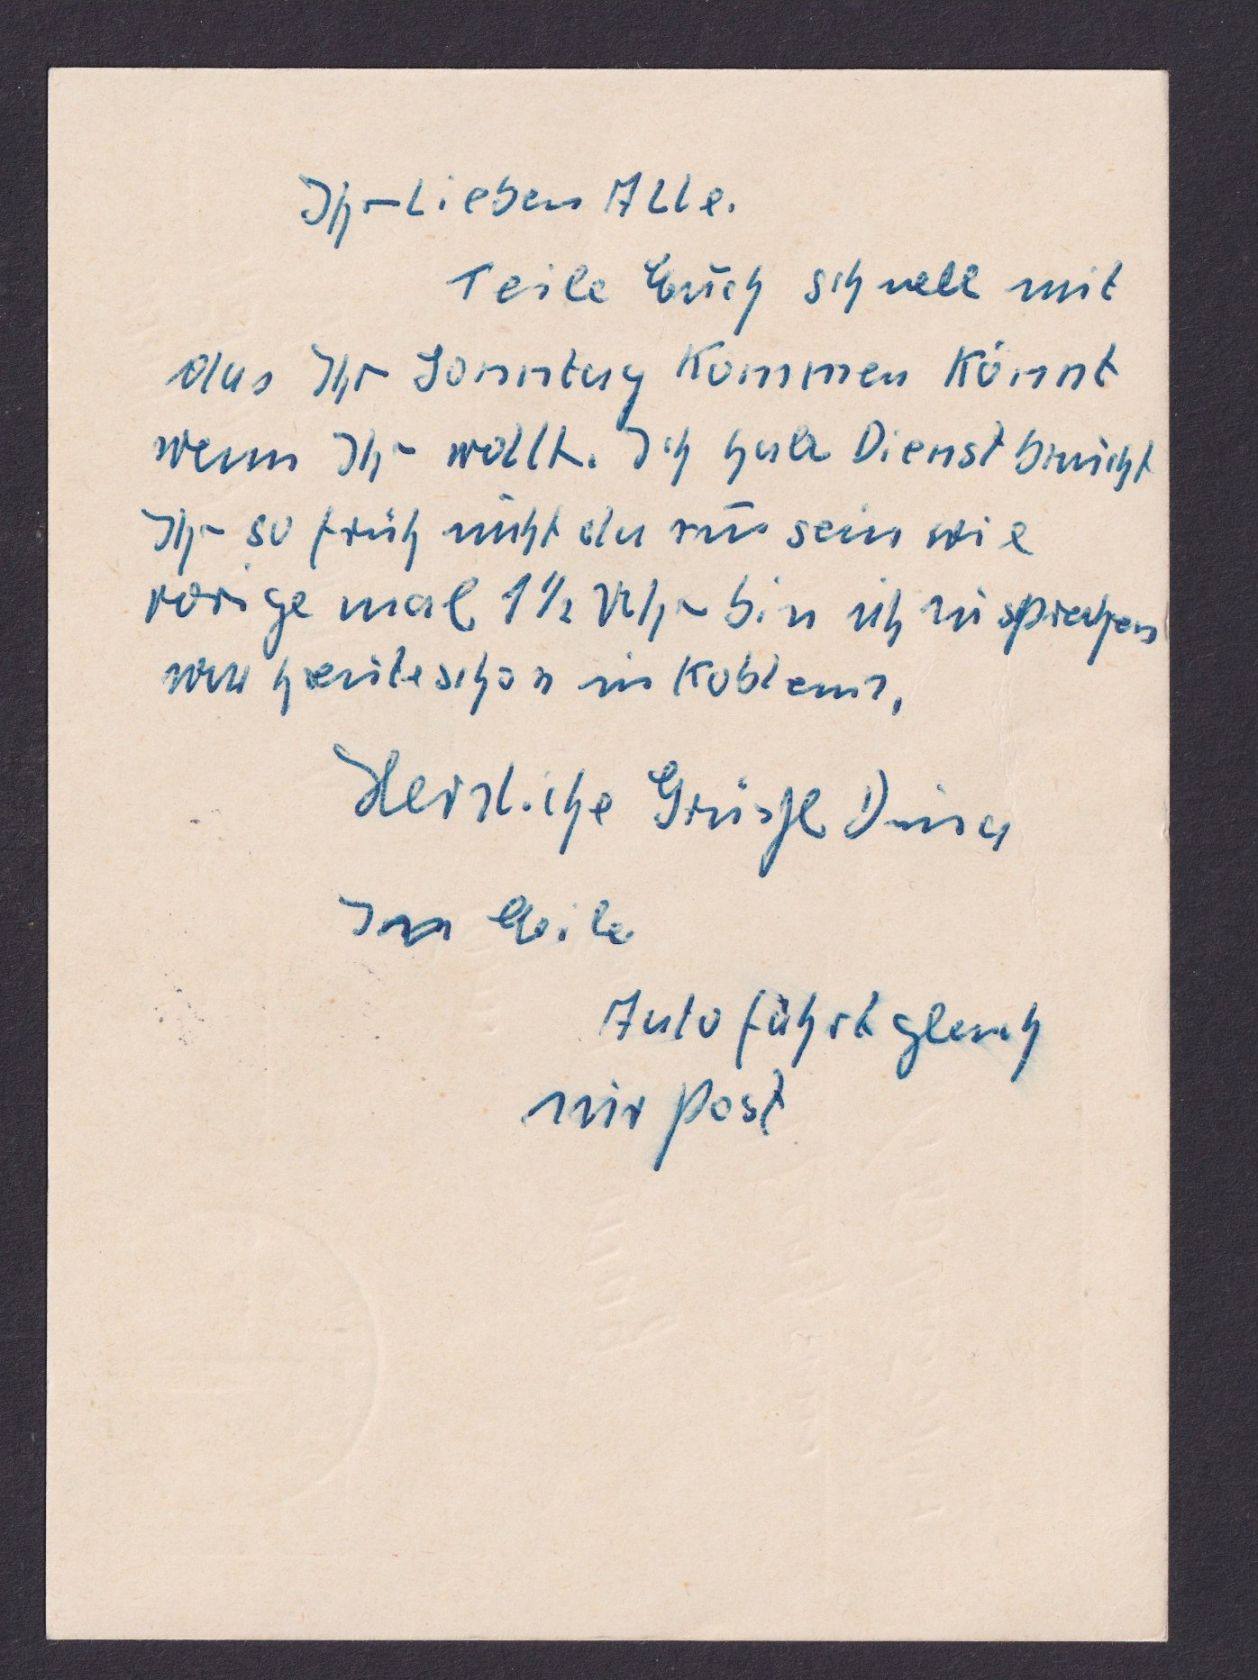 Ihr Lieben Alle.
Teile Euch schnell mit
das Ihr Sonntag Kommen Könnt
wenn Ihr wollt. Ich habe Dienst braucht
Ihr so früh nicht da zu sein wie
vorige mal 1½ Uhr bin ich zu sprechen
war heute schon in Koblenz,
Herzliche Grüsse
In Eile
Auto fährt gleich
zur Post